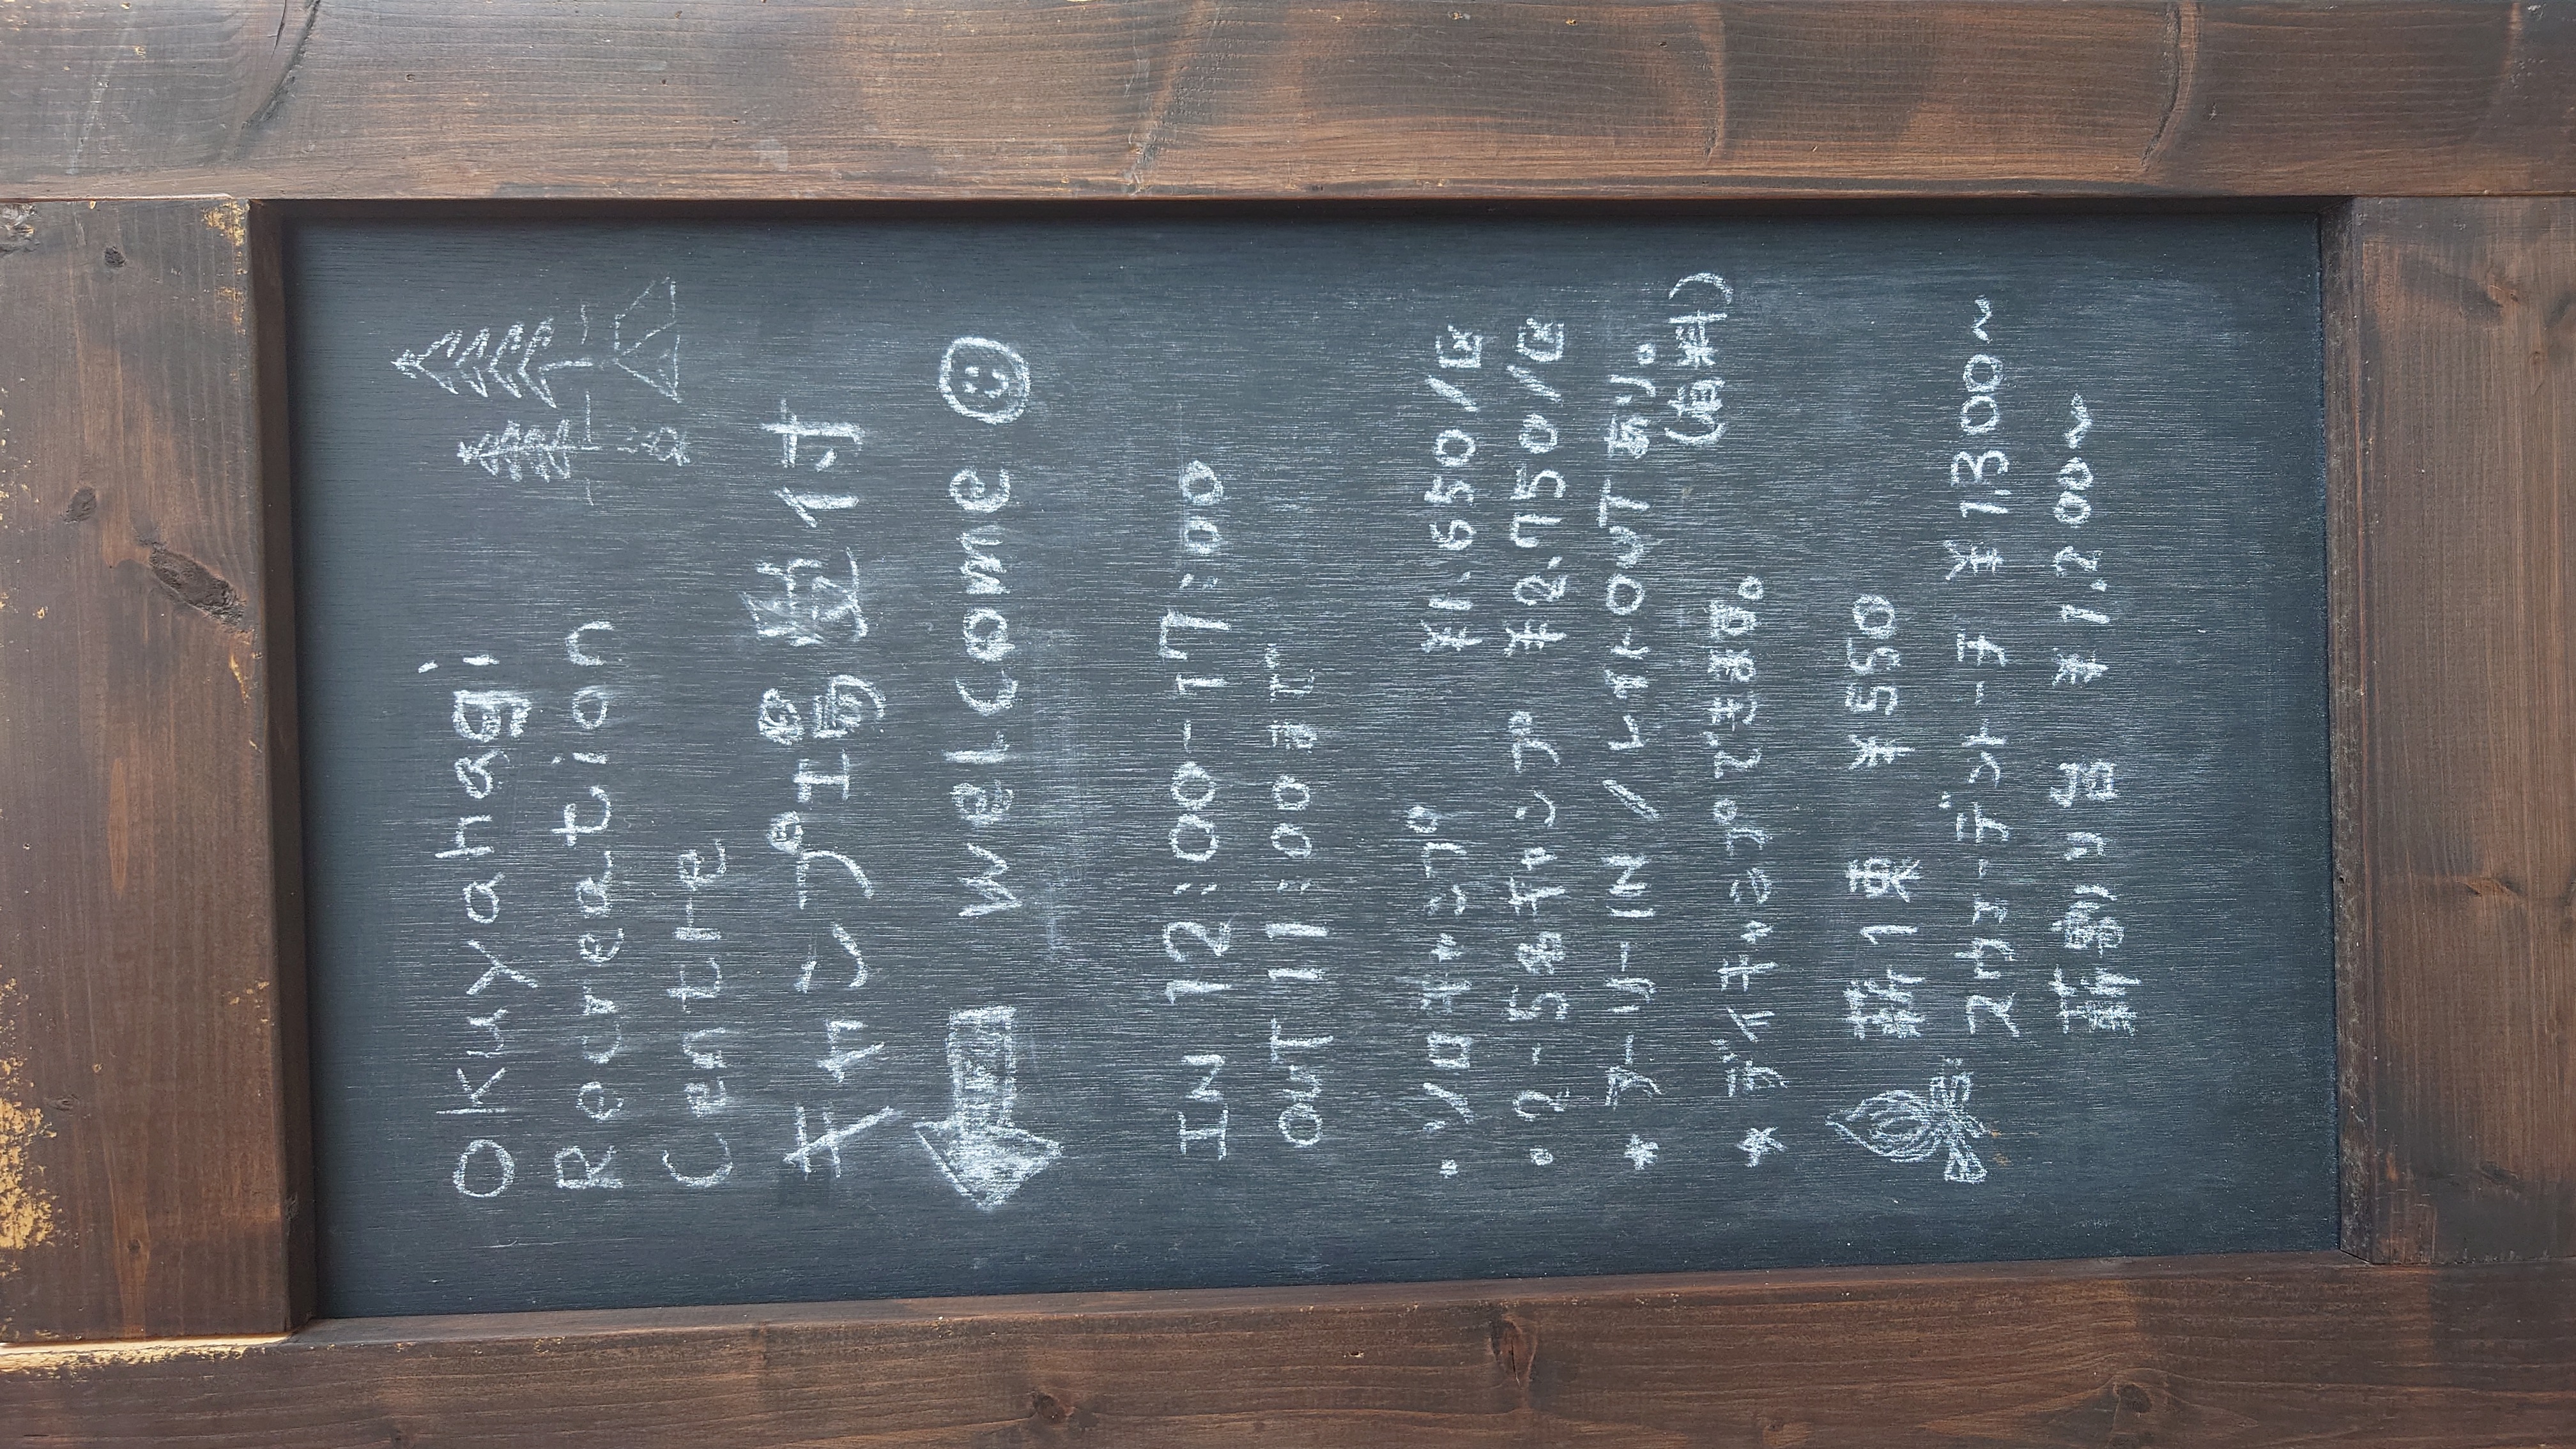 Okuyahagi
Recreation
Centre
キャンプ場受付
Welcome
IN 12:00-17:00
OUT 11:00まで
・ソロキャンプ ¥1.650/区
・2-5名キャンプ ¥2.750/区
* アーリーIN/レイトOUT あり。
(有料)
* デイキャンプできます。
薪1束 ¥550
スウェーデントーチ ¥1,300~
薪割り台 ¥1,200~